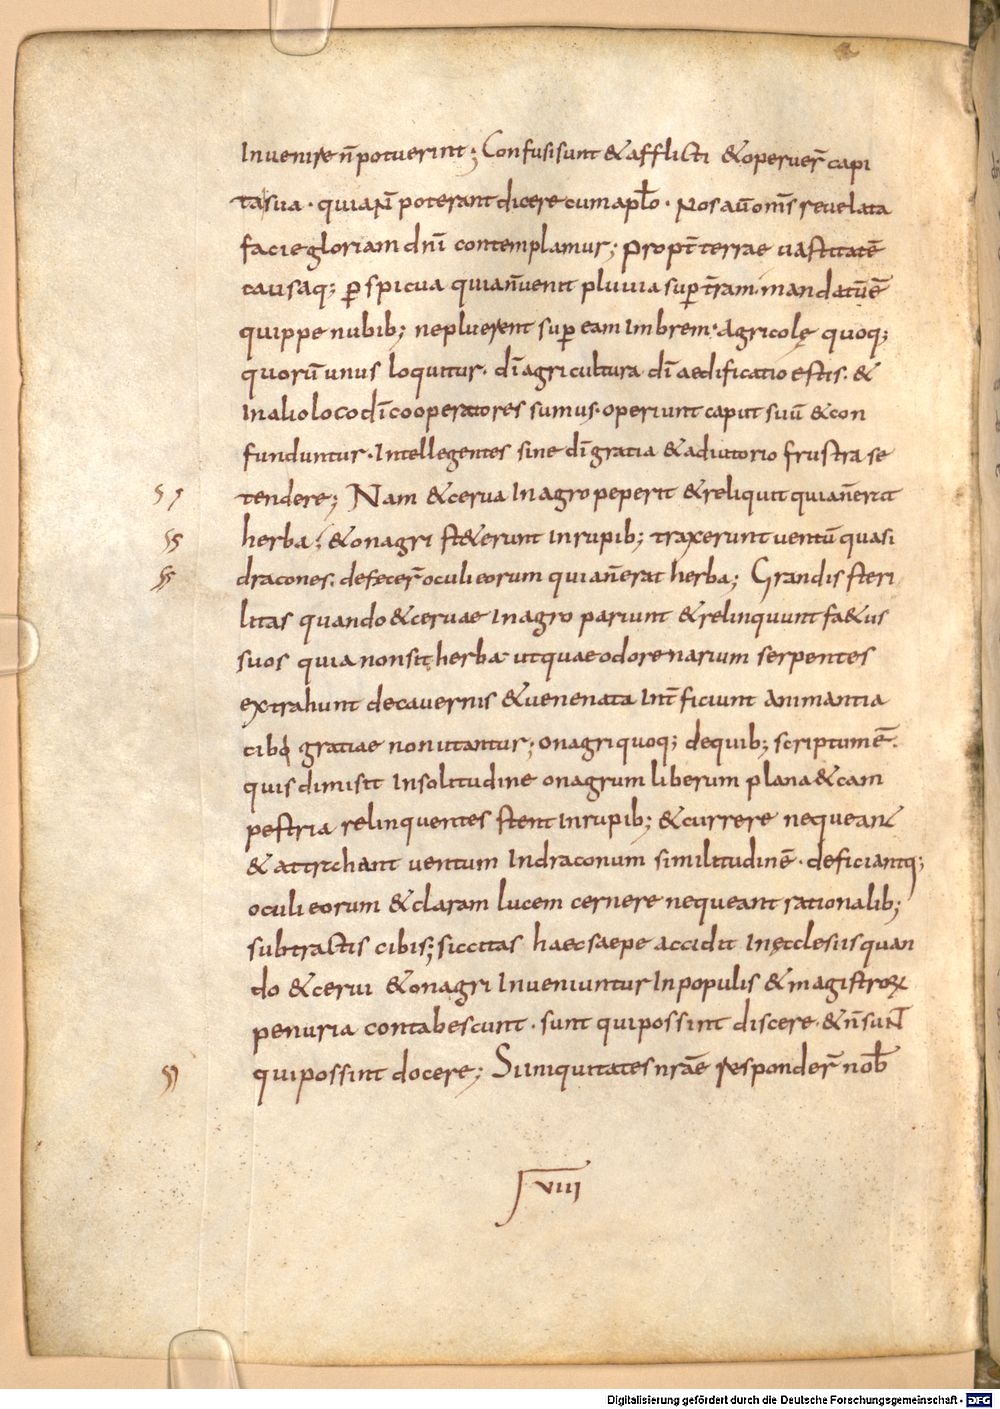 Invenire n̄ potuerint; Confusi sunt & afflicti & operuer̄ capi
ta sua · quia n̄ poterant dicere cum apl̄o · Nos aū om̄s revelata
facie gloriam dnī contemplamur; propt̄ terrae vastitatē
causaq; p̱spicua quia n̄ venit pluvia sup̱ t̄ram mandatū ē
quippe nubib; ne pluerent sup̱ eam Imbrem · Agricolę quoq;
quorū unus loquitur · dī agricultura dī aedificatio estis · &
In alio loco dī cooperatores sumus · operiunt caput suū & con
funduntur · Intellegentes sine dī gratia & adiutorio frustra se
tendere; Nam & cerva In agro peperit & reliquit quia n̄ erat
herba; & onagri st&erunt In rupib; traxerunt ventū quasi
dracones · defecer̄ oculi eorum quia n̄ erat herba; Grandis steri
litas quando & cervae In agro pariunt & relinquunt fa&us
suos quia non sit herba ut quae odore narium serpentes
extrahunt de cavernis & venenata Int̄ficiunt animantia
cibo gratiae non utantur; onagri quoq; de quib; scriptum ē ·
quis dimisit In solitudine onagrum liberum plana & cam
pestria relinquentes stent In rupib; & currere nequeant
& attrchant ventum In draconum similitudinē · deficiantq;
oculi eorum & claram lucem cernere nequeant rationalib;
subtractis cibis; siccitas haec saepe accidit In ęcclesiis quan
do & cervi & onagri Inveniuntur In populis & magistroꝝ
penuria contabescunt · sunt qui possint discere · & n̄ sunt
qui possint docere; Si iniquitates nrāe responder̄ nob̄
VIII
Digitalisierung gefördert durch die Deutsche Forschungsgemeinschaft - DFG